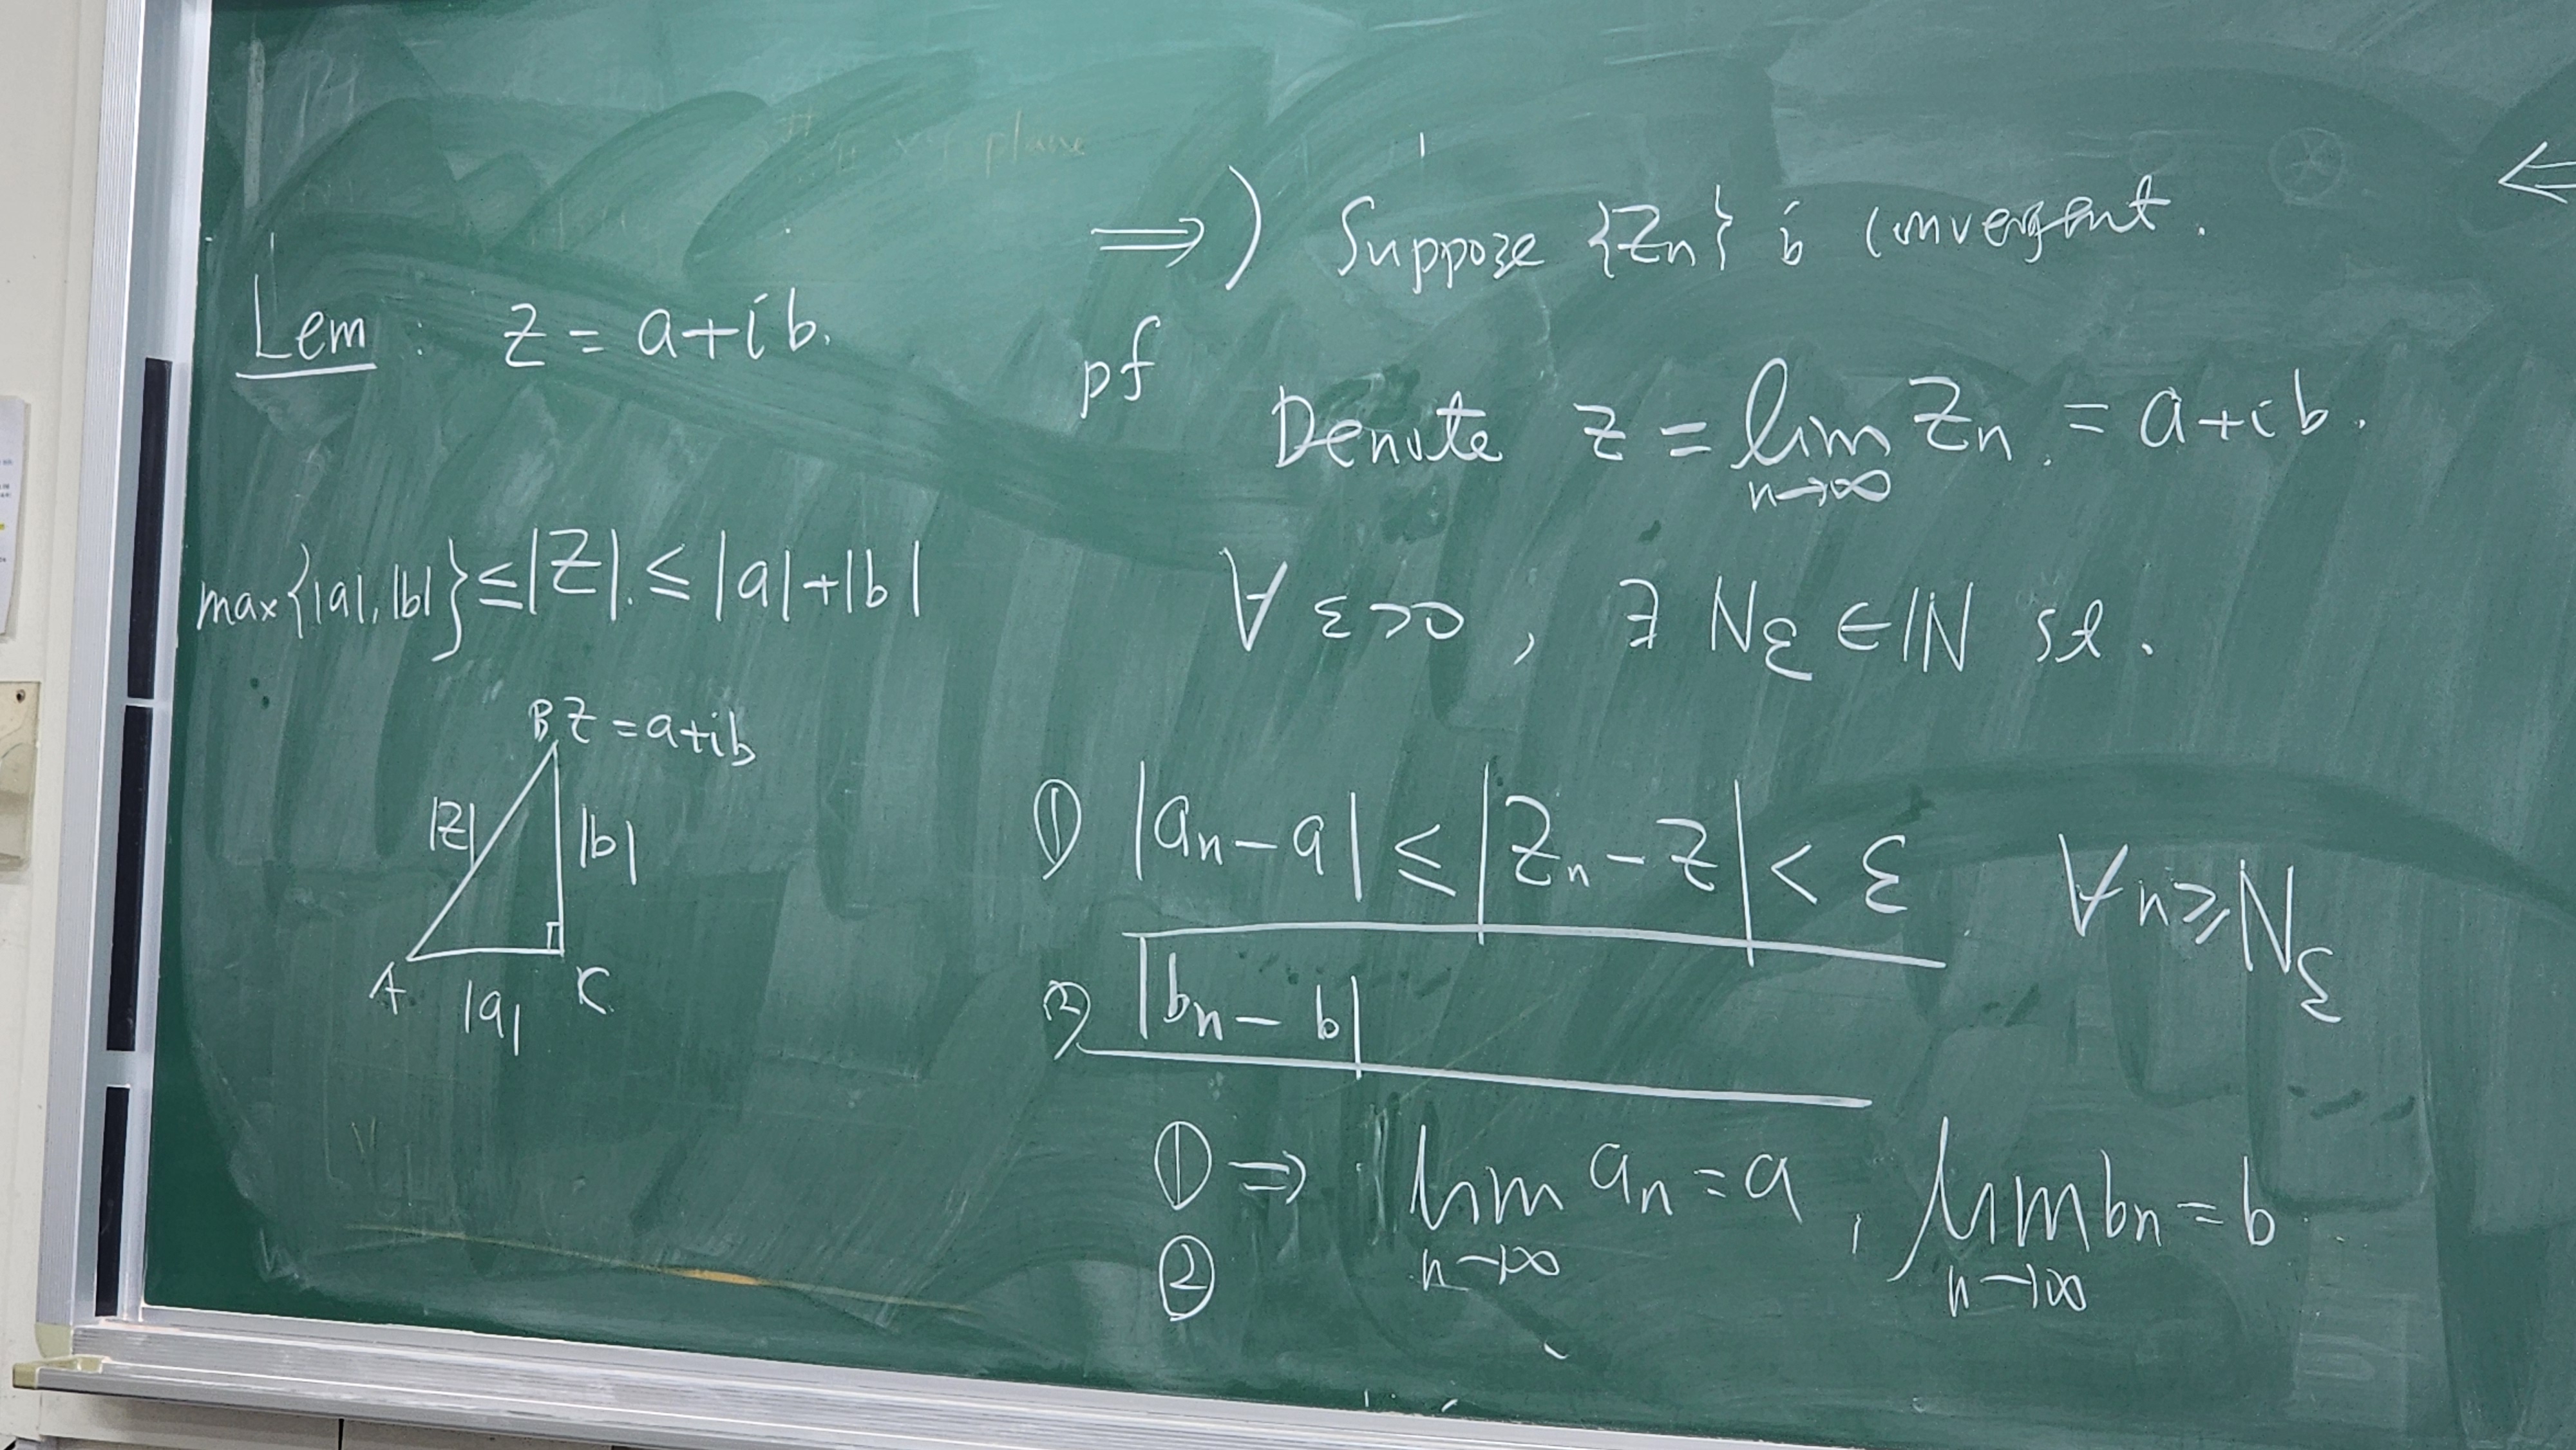 Lem : z = a+ib.
max{|a|,|b|} ≤ |Z|. ≤ |a|+|b|
B z = a+ib
|z| |b|
A |a| C
⟹) Suppose {Zn} is convergent.
pf
Denote z = lim Zn. = a+ib.
n→∞
∀ ε>0, ∃ Nε ∈ ℕ st.
① |an-a| ≤ |Zn-Z| < ε ∀n≥Nε
② |bn-b|
① ⇒ lim an = a, lim bn = b
n→∞ n→∞
②
⇐
plane